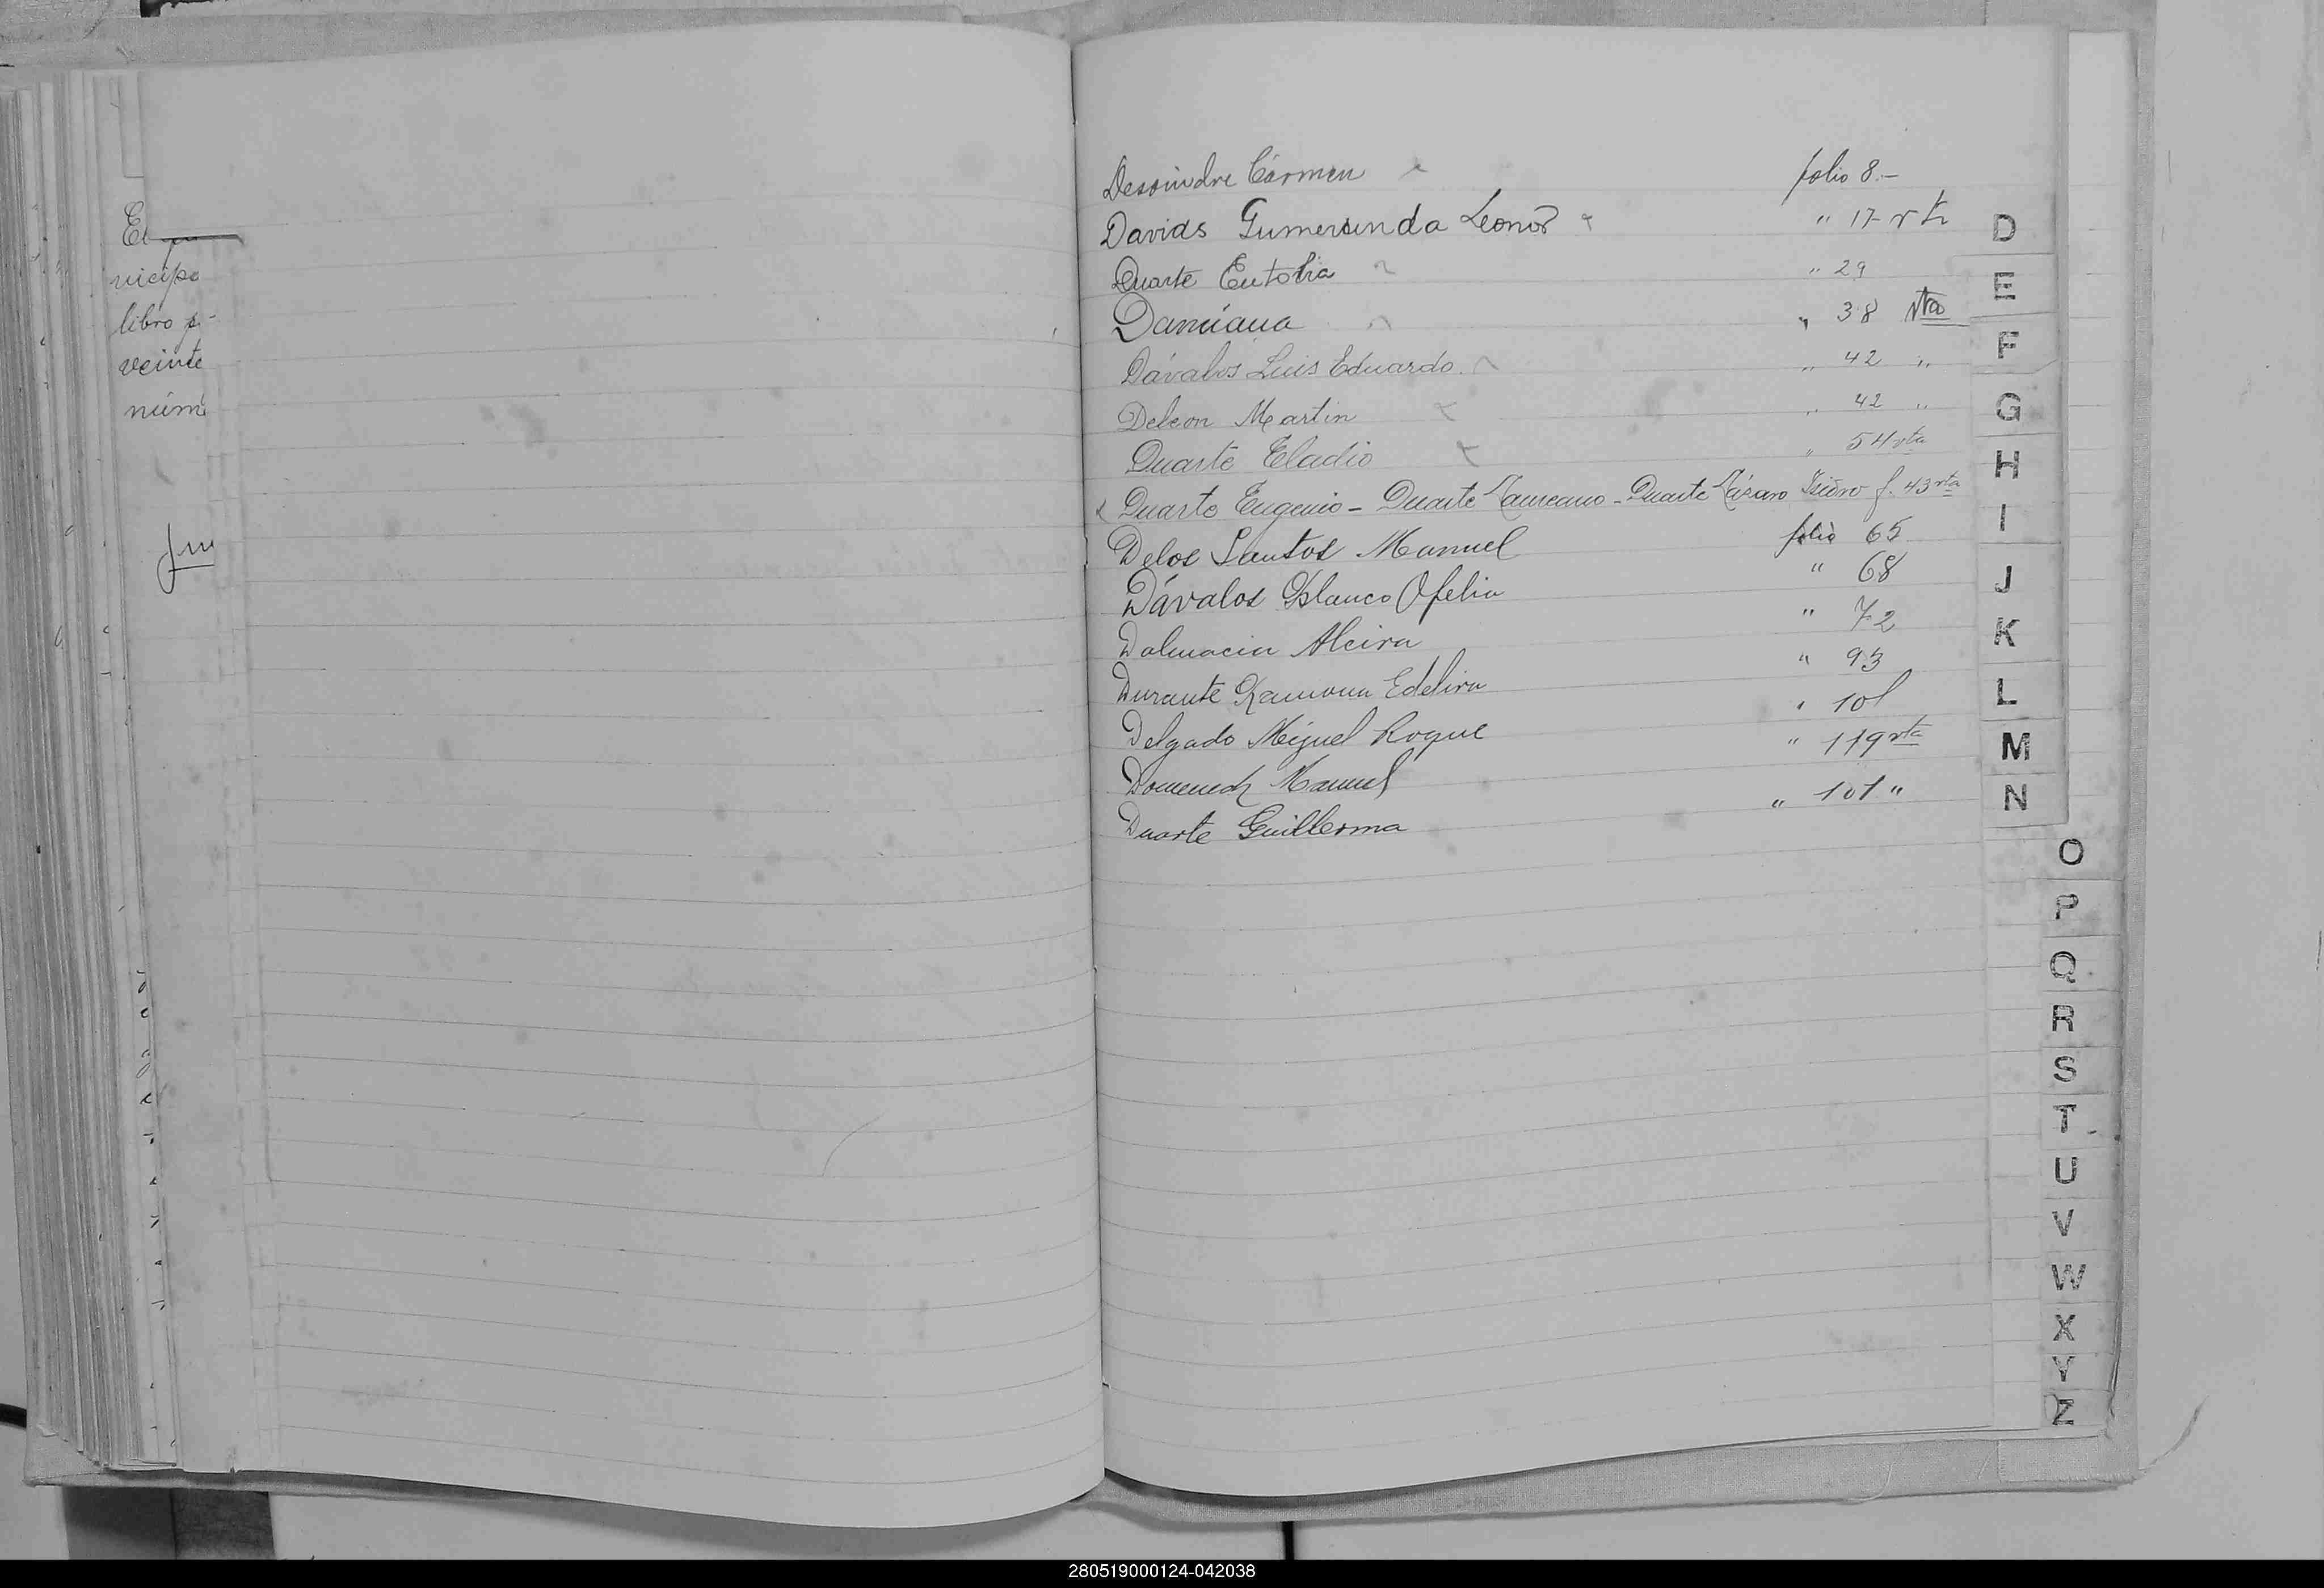 El
nicipa
libro
veinte
núm
Carmen folio 8.-
Davids Leonor " 17 vta
Duarte Eutolia " 29
Damiana " 38 vta
Dávalos Luis Eduardo. " 42 "
Deleon Martin " 42 "
Duarte Eladio " 54 vta
Duarte Eugenio - Duarte Laureano - Duarte Lázaro Isidro f. 43 vta
Delos Santos Manuel folio 65
Dávalos Blanco Ofelia " 68
Dalmacia Alcira " 72
Durante Ramona Edelira " 93
Delgado Miguel Roque " 101
Domenech Manuel " 119 vta
Duarte Guillerma " 101 "
D
E
F
G
H
I
J
K
L
M
N
O
P
Q
R
S
T
U
V
W
X
Y
Z
280519000124-042038